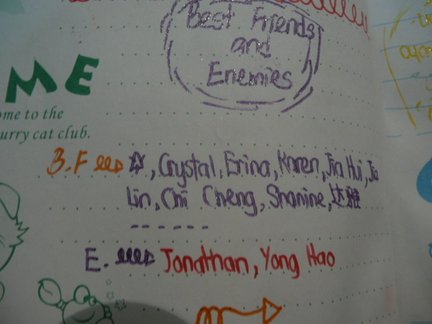 Best Friends
and
Enemies
ME
ome to the
urry cat club.
B.F ☆, Crystal, Erina, Karen, Jin Hui, Jia
Lin, Chi Cheng, Shanine,
E. Jonathan, Yong Hao